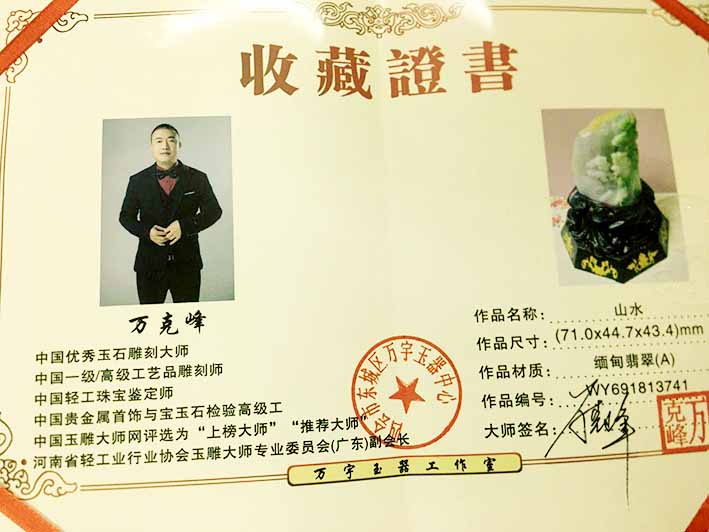 收藏證書
万克峰
中国优秀玉石雕刻大师
中国一级/高级工艺品雕刻师
中国轻工珠宝鉴定师
中国贵金属首饰与宝玉石检验高级工
中国玉雕大师网评选为“上榜大师” “推荐大师”
河南省轻工业行业协会玉雕大师专业委员会(广东)副会长
作品名称: 山水
作品尺寸: (71.0x44.7x43.4)mm
作品材质: 缅甸翡翠(A)
作品编号: WY691813741
大师签名: 万克峰
万克峰
四会市东城区万宇玉器中心
万宇玉器工作室